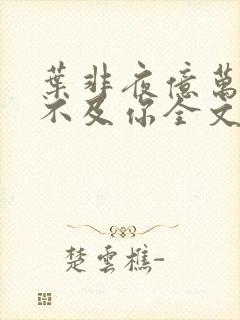 葉非夜億萬
不及你全文
楚雲樵-